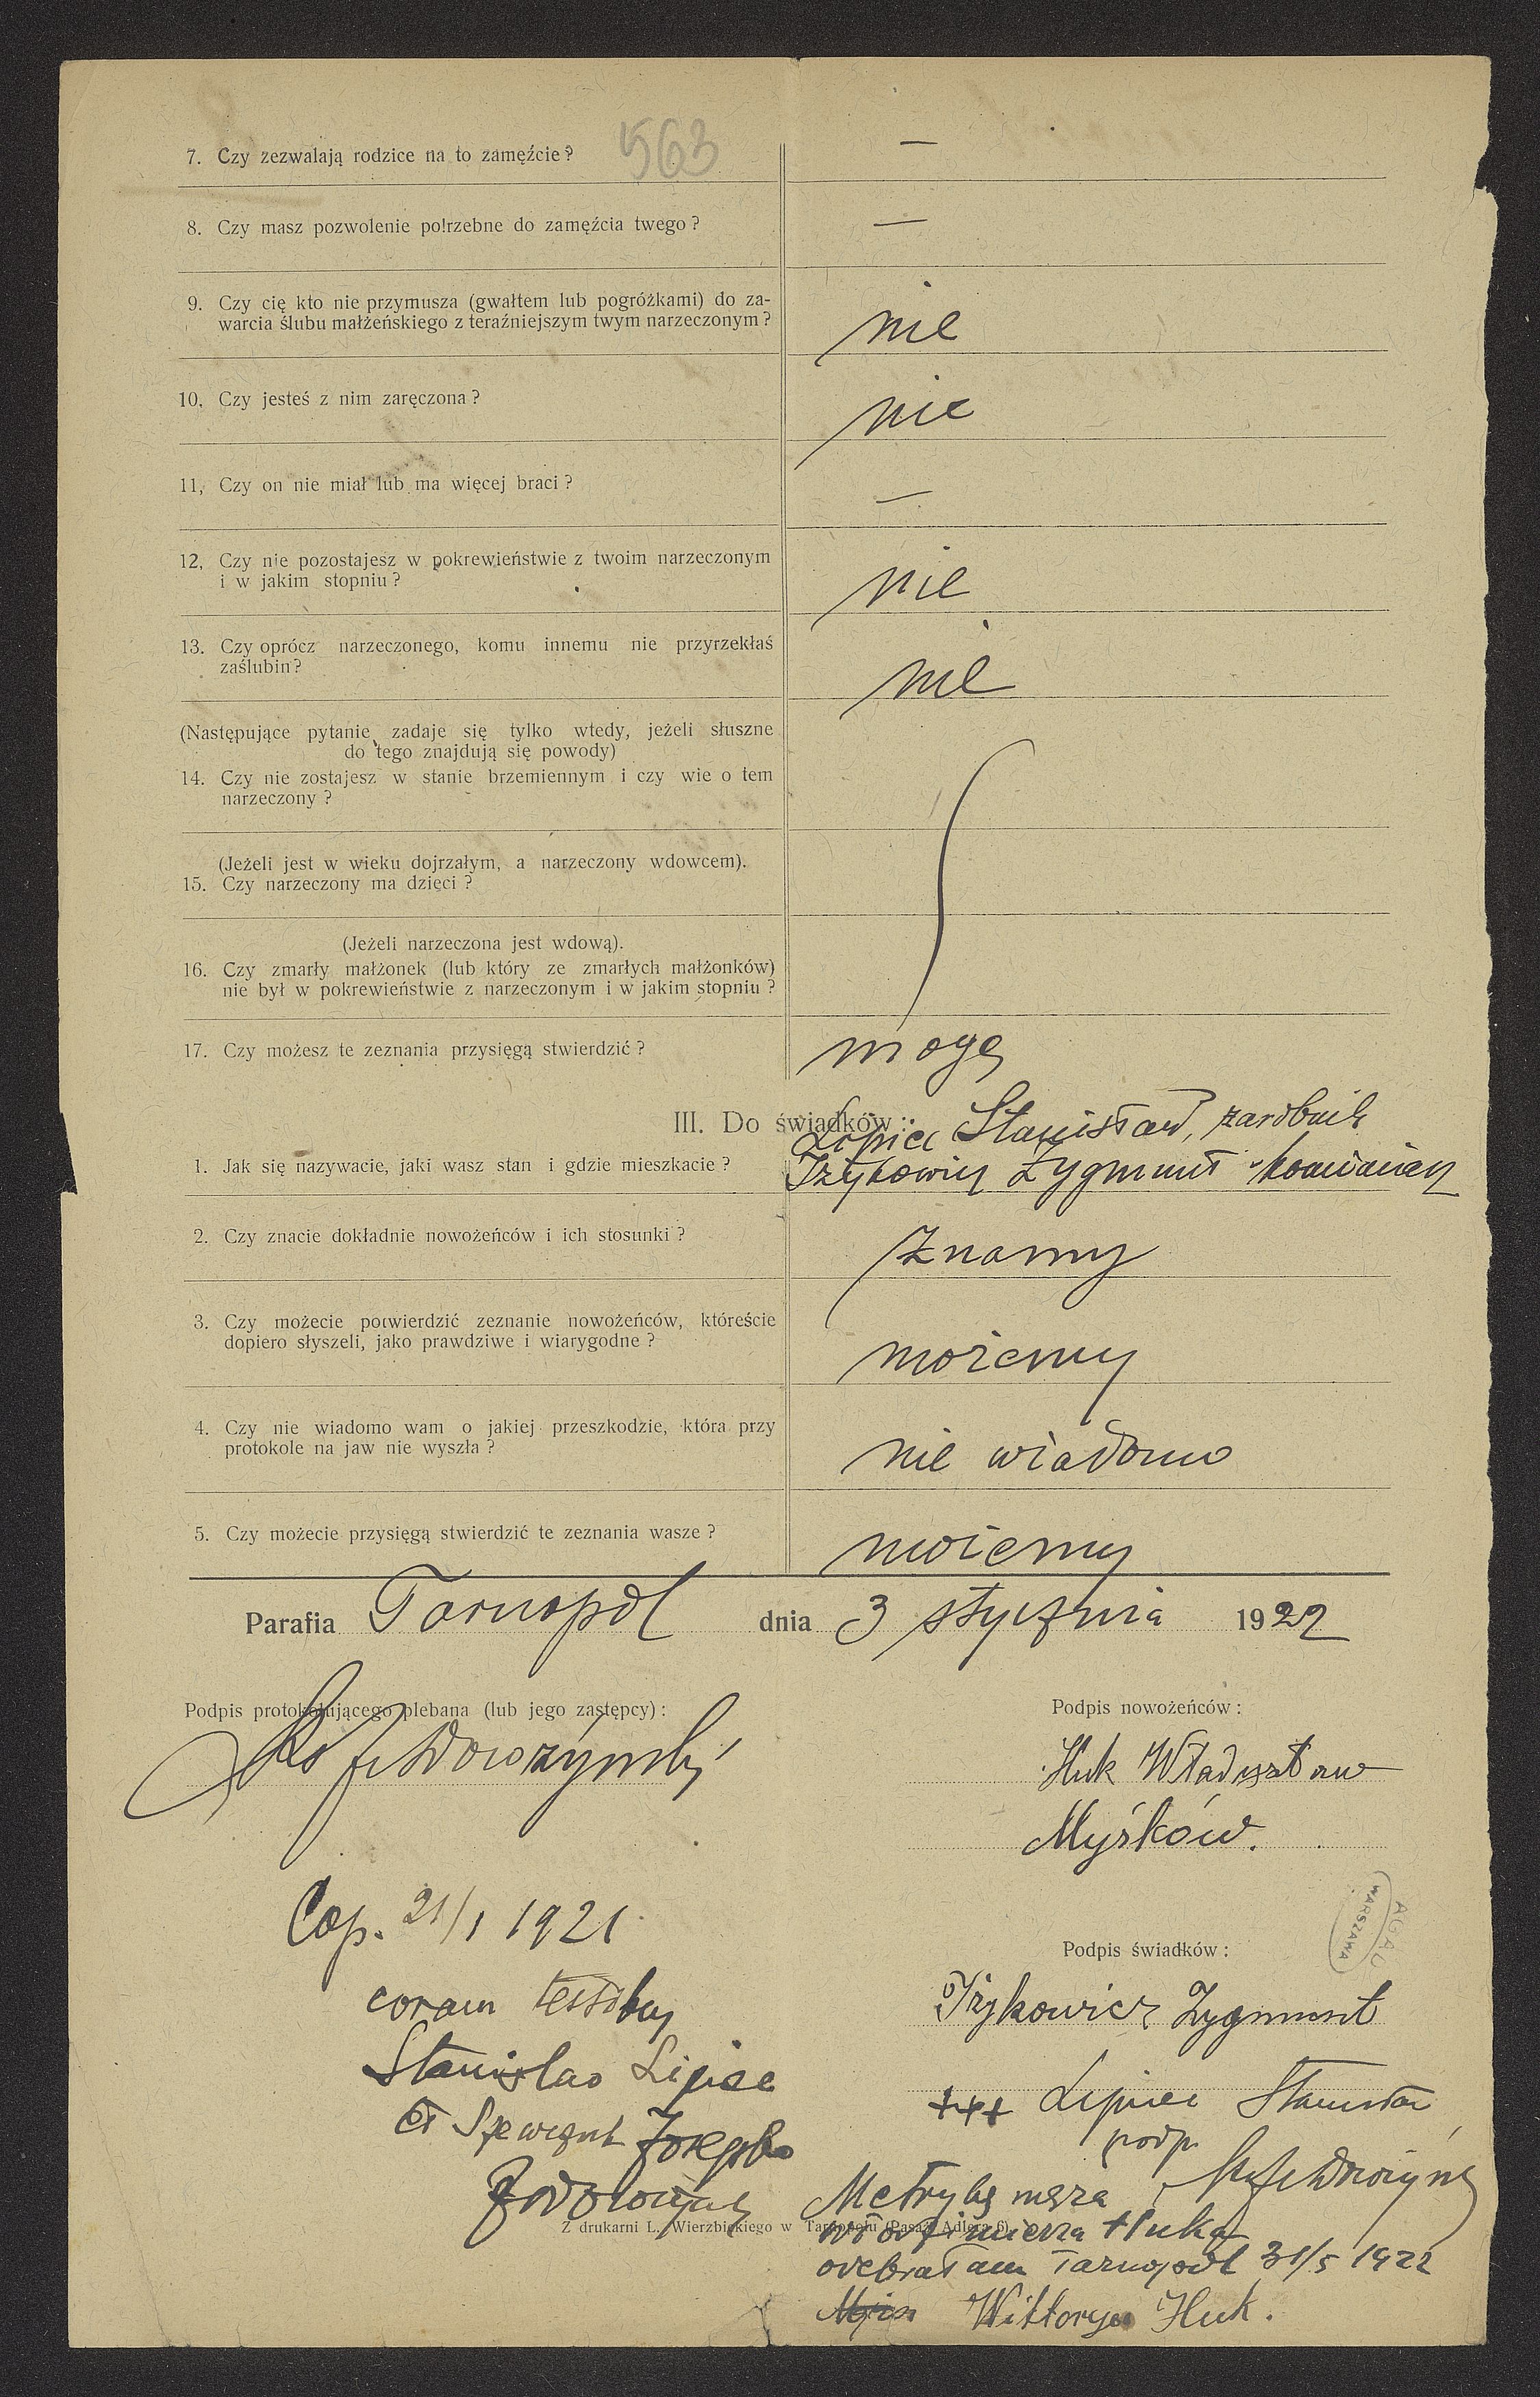 563
7. Czy zezwalają rodzice na to zamęźcie? —
8. Czy masz pozwolenie potrzebne do zamęźcia twego? —
9. Czy cię kto nie przymusza (gwałtem lub pogróżkami) do za-
warcia ślubu małżeńskiego z teraźniejszym twym narzeczonym? nie
10. Czy jesteś z nim zaręczona? nie
11, Czy on nie miał lub ma więcej braci? —
12, Czy nie pozostajesz w pokrewieństwie z twoim narzeczonym
i w jakim stopniu? nie
13. Czy oprócz narzeczonego, komu innemu nie przyrzekłaś
zaślubin? nie
(Następujące pytanie zadaje się tylko wtedy, jeżeli słuszne
do tego znajdują się powody)
14. Czy nie zostajesz w stanie brzemiennym i czy wie o tem
narzeczony?
(Jeżeli jest w wieku dojrzałym, a narzeczony wdowcem).
15. Czy narzeczony ma dzięci?
(Jeżeli narzeczona jest wdową).
16. Czy zmarły małżonek (lub który ze zmarłych małżonków)
nie był w pokrewieństwie z narzeczonym i w jakim stopniu?
17. Czy możesz te zeznania przysięgą stwierdzić? mogę
III. Do świadków:
Lipiec Stanisław, zarobnik
1. Jak się nazywacie, jaki wasz stan i gdzie mieszkacie? Irzykowicz Zygmunt
2. Czy znacie dokładnie nowożeńców i ich stosunki? znamy
3. Czy możecie potwierdzić zeznanie nowożeńców, któreście
dopiero słyszeli, jako prawdziwe i wiarygodne? możemy
4. Czy nie wiadomo wam o jakiej przeszkodzie, która przy
protokole na jaw nie wyszła? nie wiadomo
5. Czy możecie przysięgą stwierdzić te zeznania wasze? możemy
Parafia Tarnopol dnia 3 stycznia 1922
Podpis protokołującego plebana (lub jego zastępcy):
Podpis nowożeńców:
Huk Władysław
Myśków.
Cop. 21/1 1921
coram testibus
Stanislao Lipiec
et Josepho
AGAD
WARSZAWA
Podpis świadków:
Irzykowicz Zygmunt
+++ Lipiec Stanisław
podp.
Metrykę męża
Włodzimierza Huka
Z drukarni L. Wierzbickiego w Tarnopolu (Pasaż Adlera 6)
odebrałam Tarnopol 31/5 1922
Wiktorya Huk.